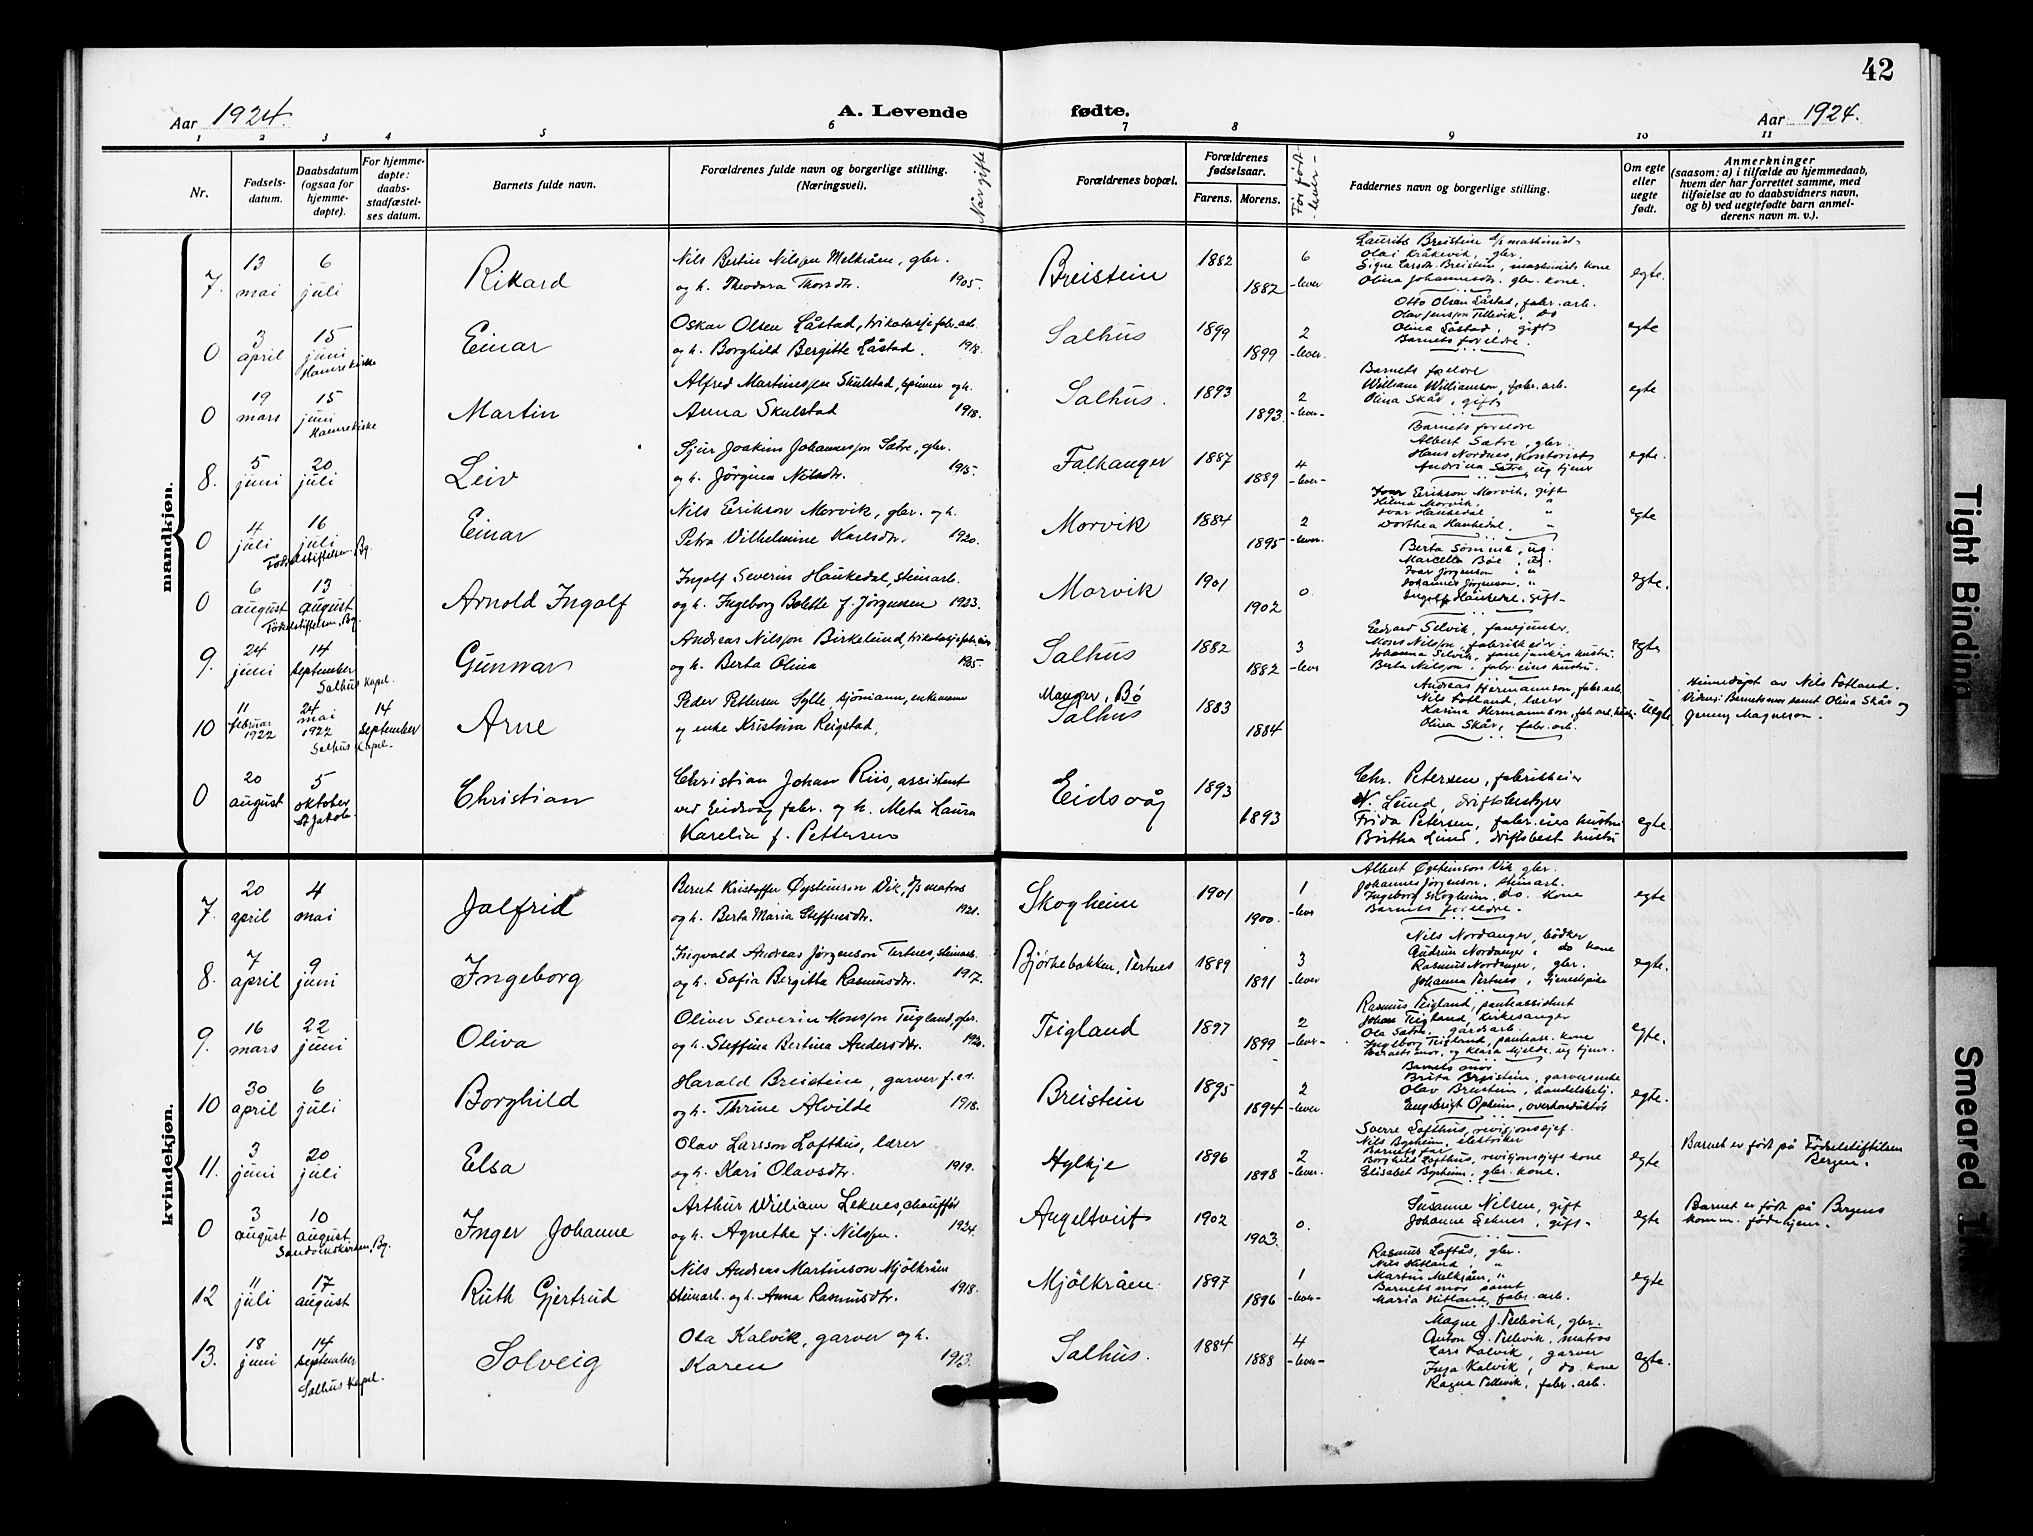 42
Aar 1924.
A. Levende
fødte.
Aar 1924.
1 2 3 4 5 6 7 8 9 10 11
Nr.
Fødsels-
datum.
Daabsdatum
(ogsaa for
hjemme-
døpte).
For hjemme-
døpte:
daabs-
stadfæstel-
ses datum.
Barnets fulde navn.
Forældrenes fulde navn og borgerlige stilling.
(Næringsvei).
Når gifte
Forældrenes bopæl.
Forældrenes
fødselsaar.
Farens. Morens.
Faddernes navn og borgerlige stilling.
Om egte
eller
uegte
født.
Anmerkninger
(saasom: a) i tilfælde av hjemmedaab,
hvem der har forrettet samme, med
tilføielse av to daabsvidners navn,
og b) ved uegtefødte barn anmel-
derens navn m. v.).
mandkjøn.
7. 13 mai 6 juli Rikard
Nils Bertin Nilsson Melkråen, gbr.
og h. Theodora Thorsdtr. 1905.
Breistein 1882 1882 6 -lever
Laurits Breistein
Olai Kråkevik, gbr.
Signe Larsdr. Breistein, maskinists kone
Olina Johannesdr. gbr. kone.
egte.
0 3 april 15 juni Hamre kirke Einar
Oskar Olsen Låstad, trikotasjefabr.arb.
og h. Borghild Bergitte Låstad. 1918.
Salhus 1899 1899 2 -lever.
Otto Olsen Låstad, fabr. arb.
Olav Jensson Tellevik, do
Olina Låstad, gift
Barnets foreldre.
egte
0 19 mars 15 juni Hamre kirke Martin
Alfred Martinessen Skulstad, spinner og h.
Anna Skulstad 1918.
Salhus. 1893 1893 2 -lever-
Barnets foreldre
William Williamson, fabr. arb.
Olina Skår, gift
egte
8. 5 juni 20 juli Leiv
Sjur Joakim Johannesson Sætre, gbr.
og h. Jörgina Nilsdtr. 1915.
Falkanger 1887 1889 4 -lever-
Barnets foreldre
Albert Sætre, gbr.
Hans Nordnes, kontorist
Andrina Sætre, ug tjener
egte.
0 4 juli 16 juli Fødselsstiftelsen Bg. Einar
Nils Eirikson Morvik, gbr. og h.
Petra Vilhelmine Karlsdtr. 1920.
Morvik 1884 1895 2 -lever.
Ivar Eirikson Morvik, gift
Hilma Morvik, "
Ivar Haukedal, "
Dorthea Haukedal, "
egte
0 6 august 13 august Fødselstiftelsen, Bg. Arnold Ingolf
Ingolf Severin Haukedal, steinarb.
og h. Ingeborg Bolette f. Jörgensen 1923.
Morvik 1901 1902 0.
Berta Sömme, ug.
Marcella Böe, ug.
Ivar Jørgenson, "
Johannes Jørgenson, "
Ingolf Haukedal, gift-
egte.
9. 24 juni 14 september Salhus Kapel. Gunnar
Andreas Nilsson Birkelund, trikotasjefabr.eier
og h. Berta Olina 1905.
Salhus 1882 1882 3 -lever
Edvard Selvik, fanejunker,
Mons Nilsson, fabrikkeier.
Johanna Selvik, fanejunkers hustru.
Berta Nilson, fabr. eiers hustru.
egte
10 11 februar 1922 24 mai 1922 Salhus Kapel. 14 september Arne
Peder Pettersen Sylte, sjömann, enkemann
og enke Kristina Reigstad.
Manger, Bö
Salhus 1883 1884
Andreas Hermannson, fabr. arb.
Nils Fotland, lærer
Karina Hermannson, fabr.arb. hustru
Olina Skår, fabr. arb.
Uegte
Hjemmedöpt av Nils Fotland.
Vidner: Barnets mor samt Olina Skår og
Jenny Magnesson.
0 20 august 5 oktober St. Jakob. Christian
Christian Johan Riis, assistent
ved Eidsvåg fabr. og h. Meta Laura
Karelia f. Pettersen
Eidsvåg 1893 1893
Chr. Petersen, fabrikkeier
N. Lund, driftsbestyrer
Frida Petersen, fabr. eiers hustru
Birtha Lund, driftsbest hustru
egte.
kvindekjøn.
7. 20 april 4 mai Jalfrid
Bernt Kristoffer Øysteinson Vik, d/s matros
og h. Berta Maria Steffensdtr. 1921.
Skogheim 1901 1900. 1 -lever
Albert Øysteinson Vik, gbr.
Johannes Jørgenson, steinarb.
Ingeborg Skogheim, do. kone
Barnets foreldre.
egte
8. 7 april 9 juni Ingeborg
Ingvald Andreas Jørgenson Tertnes, steinarb.
og h. Sofia Bergitta Rasmusdtr. 1917.
Bjørkebakken, Tertnes 1889 1891 3 -lever
Nils Nordanger, bödker
Gudrun Nordanger, do kone
Rasmus Nordanger, gbr.
Johanna Tertnes, tjenestepike
egte.
9. 16 mars 22 juni Oliva
Oliver Severin Monsson Teigland, gbr.
og h. Steffina Bertina Andersdtr. 1920.
Teigland 1897 1899 2 -lever-
Rasmus Teigland, panteassistent
Johan Teigland, kirkesanger
Ola Sætre, gårdsarb.
Ingeborg Teigland, panteass. kone
Barnets mor, og Klara Mjelde, ug tjener.
egte.
10 30 april 6 juli Borghild
Harald Breistein, garver f. er.
og h. Thrine Alvilde 1918.
Breistein 1895 1894 2 -lever
Barnets mor
Brita Breistein, garverenke
Olav Breistein, handelsbetj.
Engebrigt Opheim, overkonduktör
egte.
11. 3 juni 20 juli Elsa
Olav Larsson Lofthus, lærer
og h. Kari Olavsdtr. 1919.
Hylkje 1896 1898 2 -lever.
Sverre Lofthus, revisjonssjef.
Nils Byrheim, elektriker
Barnets far
Borghild Lofthus, revisjonssjefs kone
Elisabet Byrheim, gbr. kone.
egte
Barnet er født på Fødselstiftelsen
Bergen.
0 3 august 10 august Sandvikskirken, Bg. Inger Johanne
Arthur William Leknes, chauffør
og h. Agnethe f. Nilssen. 1924.
Angeltveit 1902 1903. 0.
Susanne Nilsen, gift
Johanne Leknes, gift-
egte
Barnet er født på Bergens
komm. fødehjem.
12 11 juli 17 august Ruth Gjertrud
Nils Andreas Martinson Mjölkråen
steinarb. og h. Anna Rasmusdtr. 1918.
Mjölkråen. 1897 1896 1 -lever-
Rasmus Loftås, gbr.
Nils Hitland, "
Martin Melkråen, "
Barnets mor samt
Maria Hitland, fabr. arb.
egte
13. 18 juni 14 september Salhus Kapel. Solveig
Ola Kalvik, garver og h.
Karen 1913.
Salhus. 1884 1888 4 -lever-
Magne J. Tellevik, gbr.
Anton J. Tellevik, matros
Lars Kalvik, garver
Inga Kalvik, do. kone
Ragna Tellevik, fabr. arb.
egte.
Tight Binding
Smeared